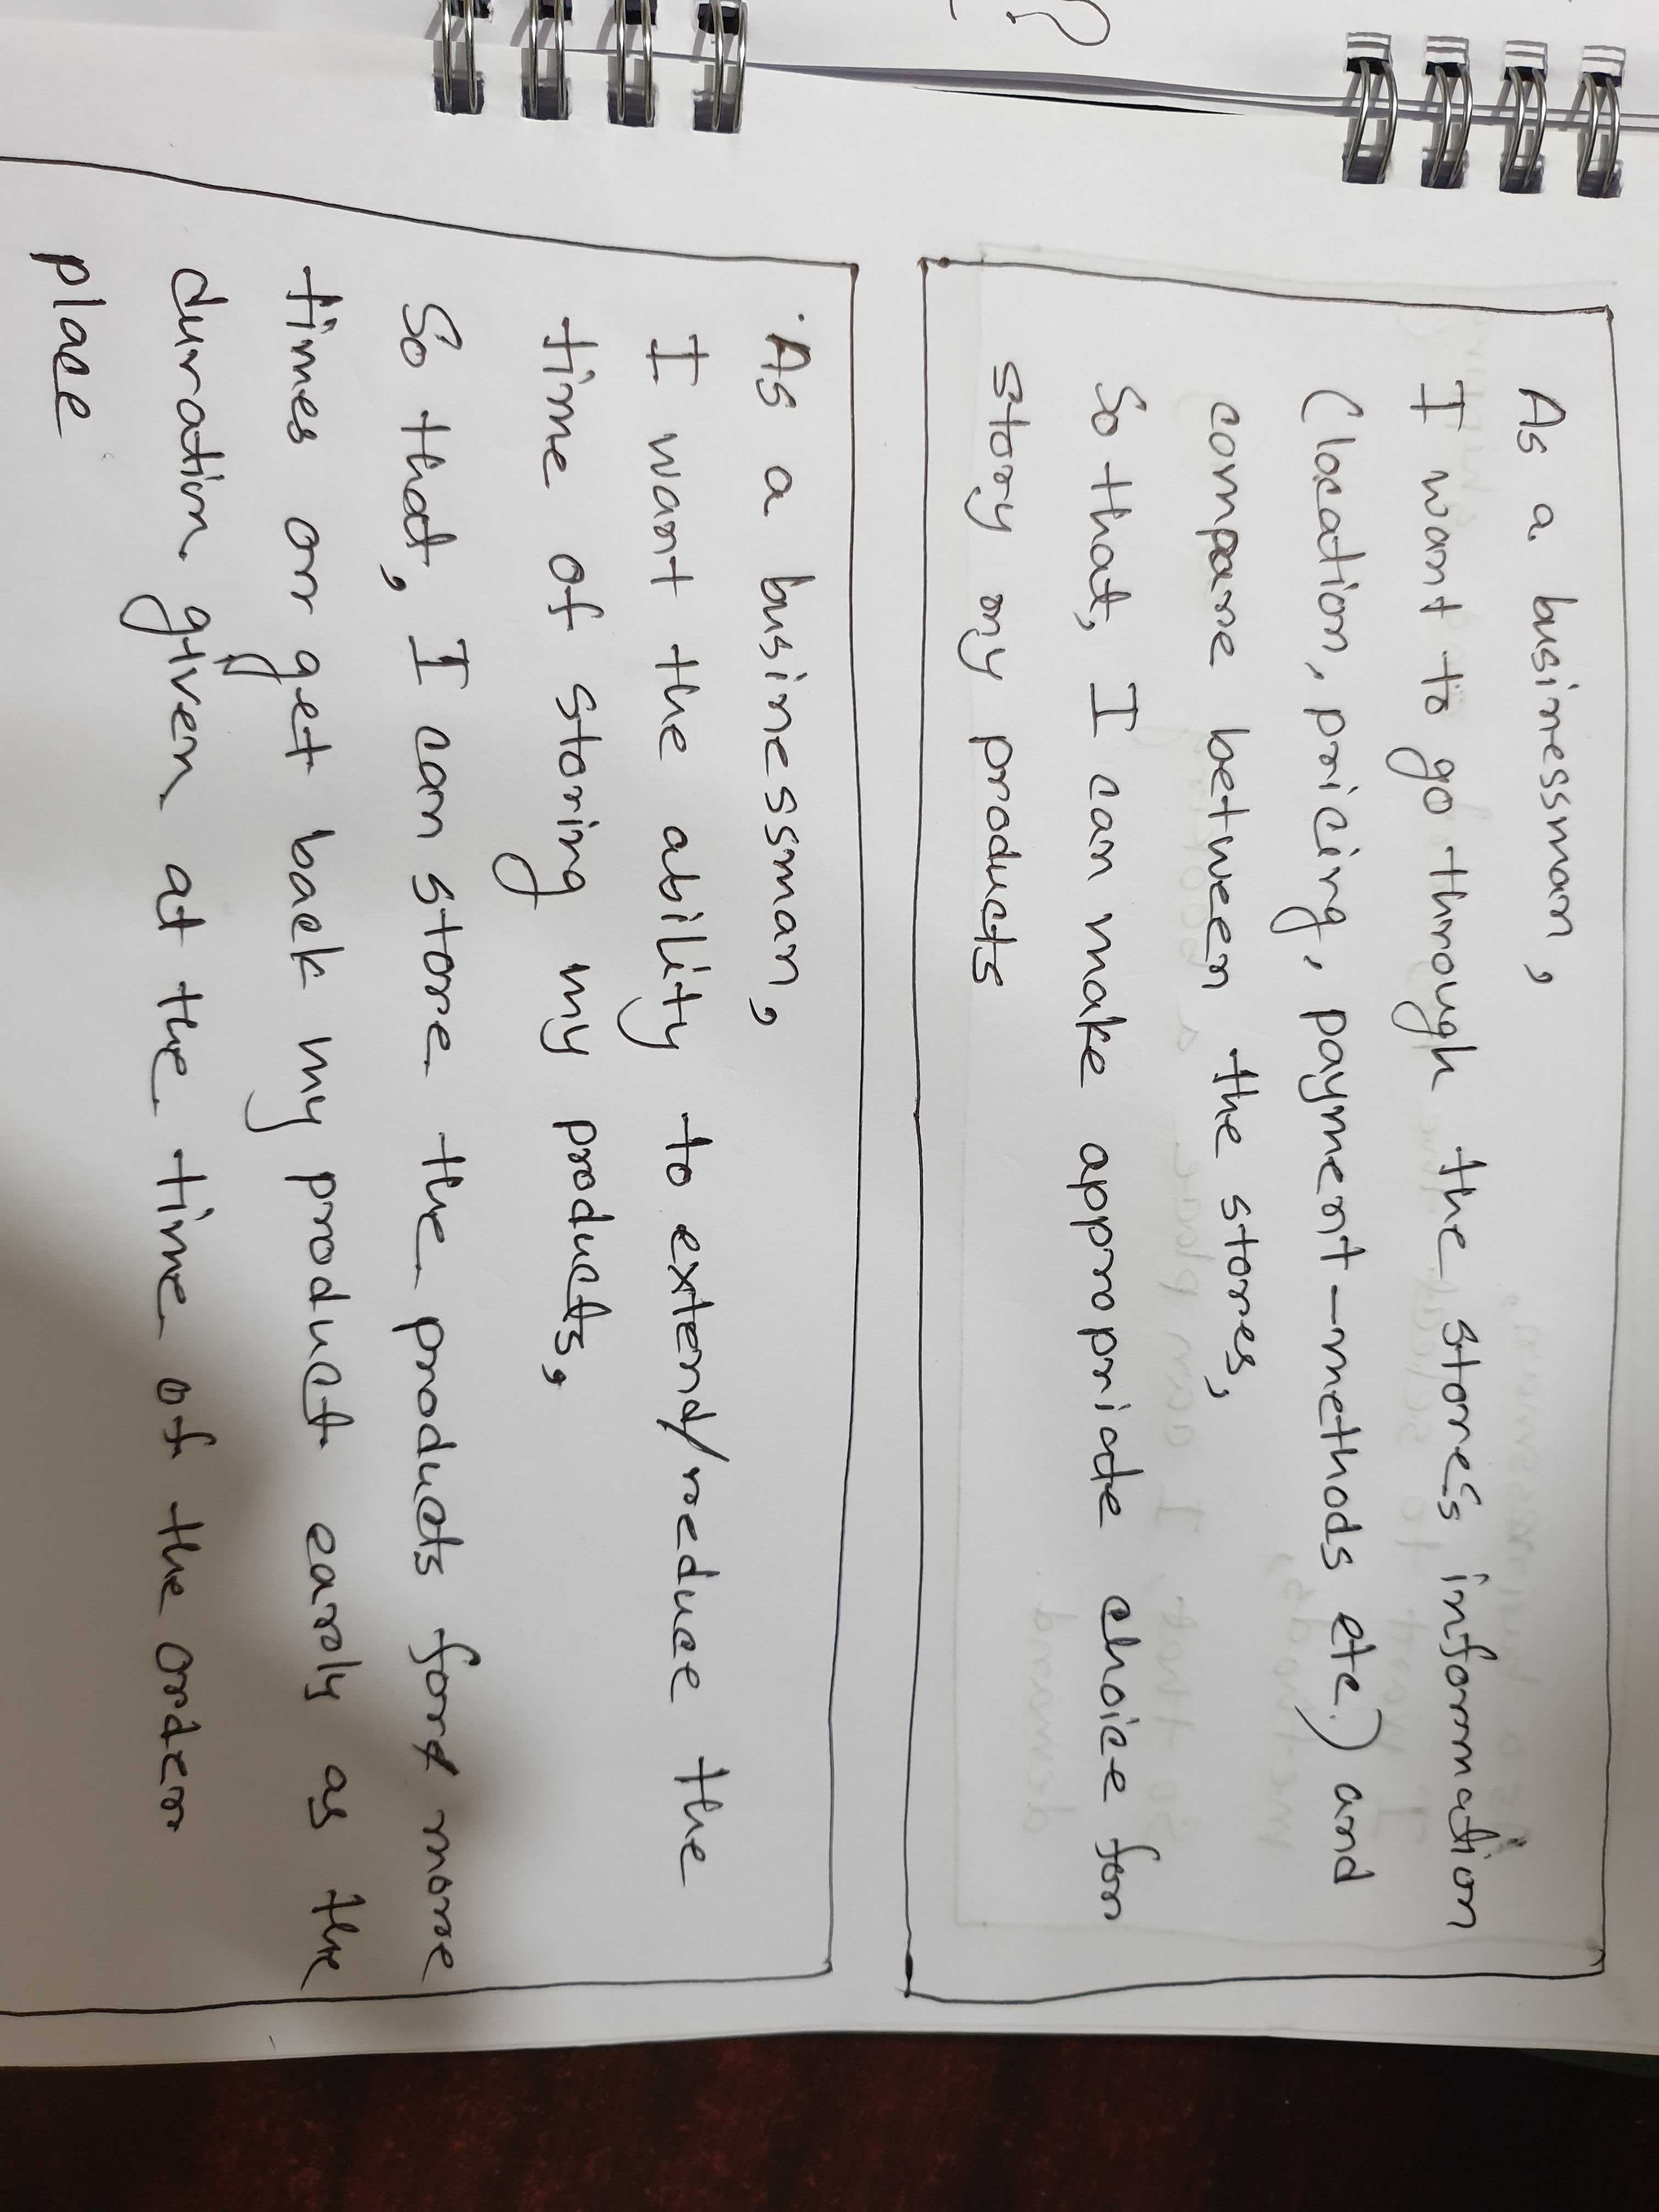 As a businessman,
I want to go through the store's information
(location, pricing, payment-methods etc.) and
compare between the stores,
So that, I can make appropriate choice for
story my products
As a businessman,
I want the ability to extend/reduce the
time of storing my products,
So that, I can store the products for more
times or get back my product early as the
duration given at the time of the order
place
?